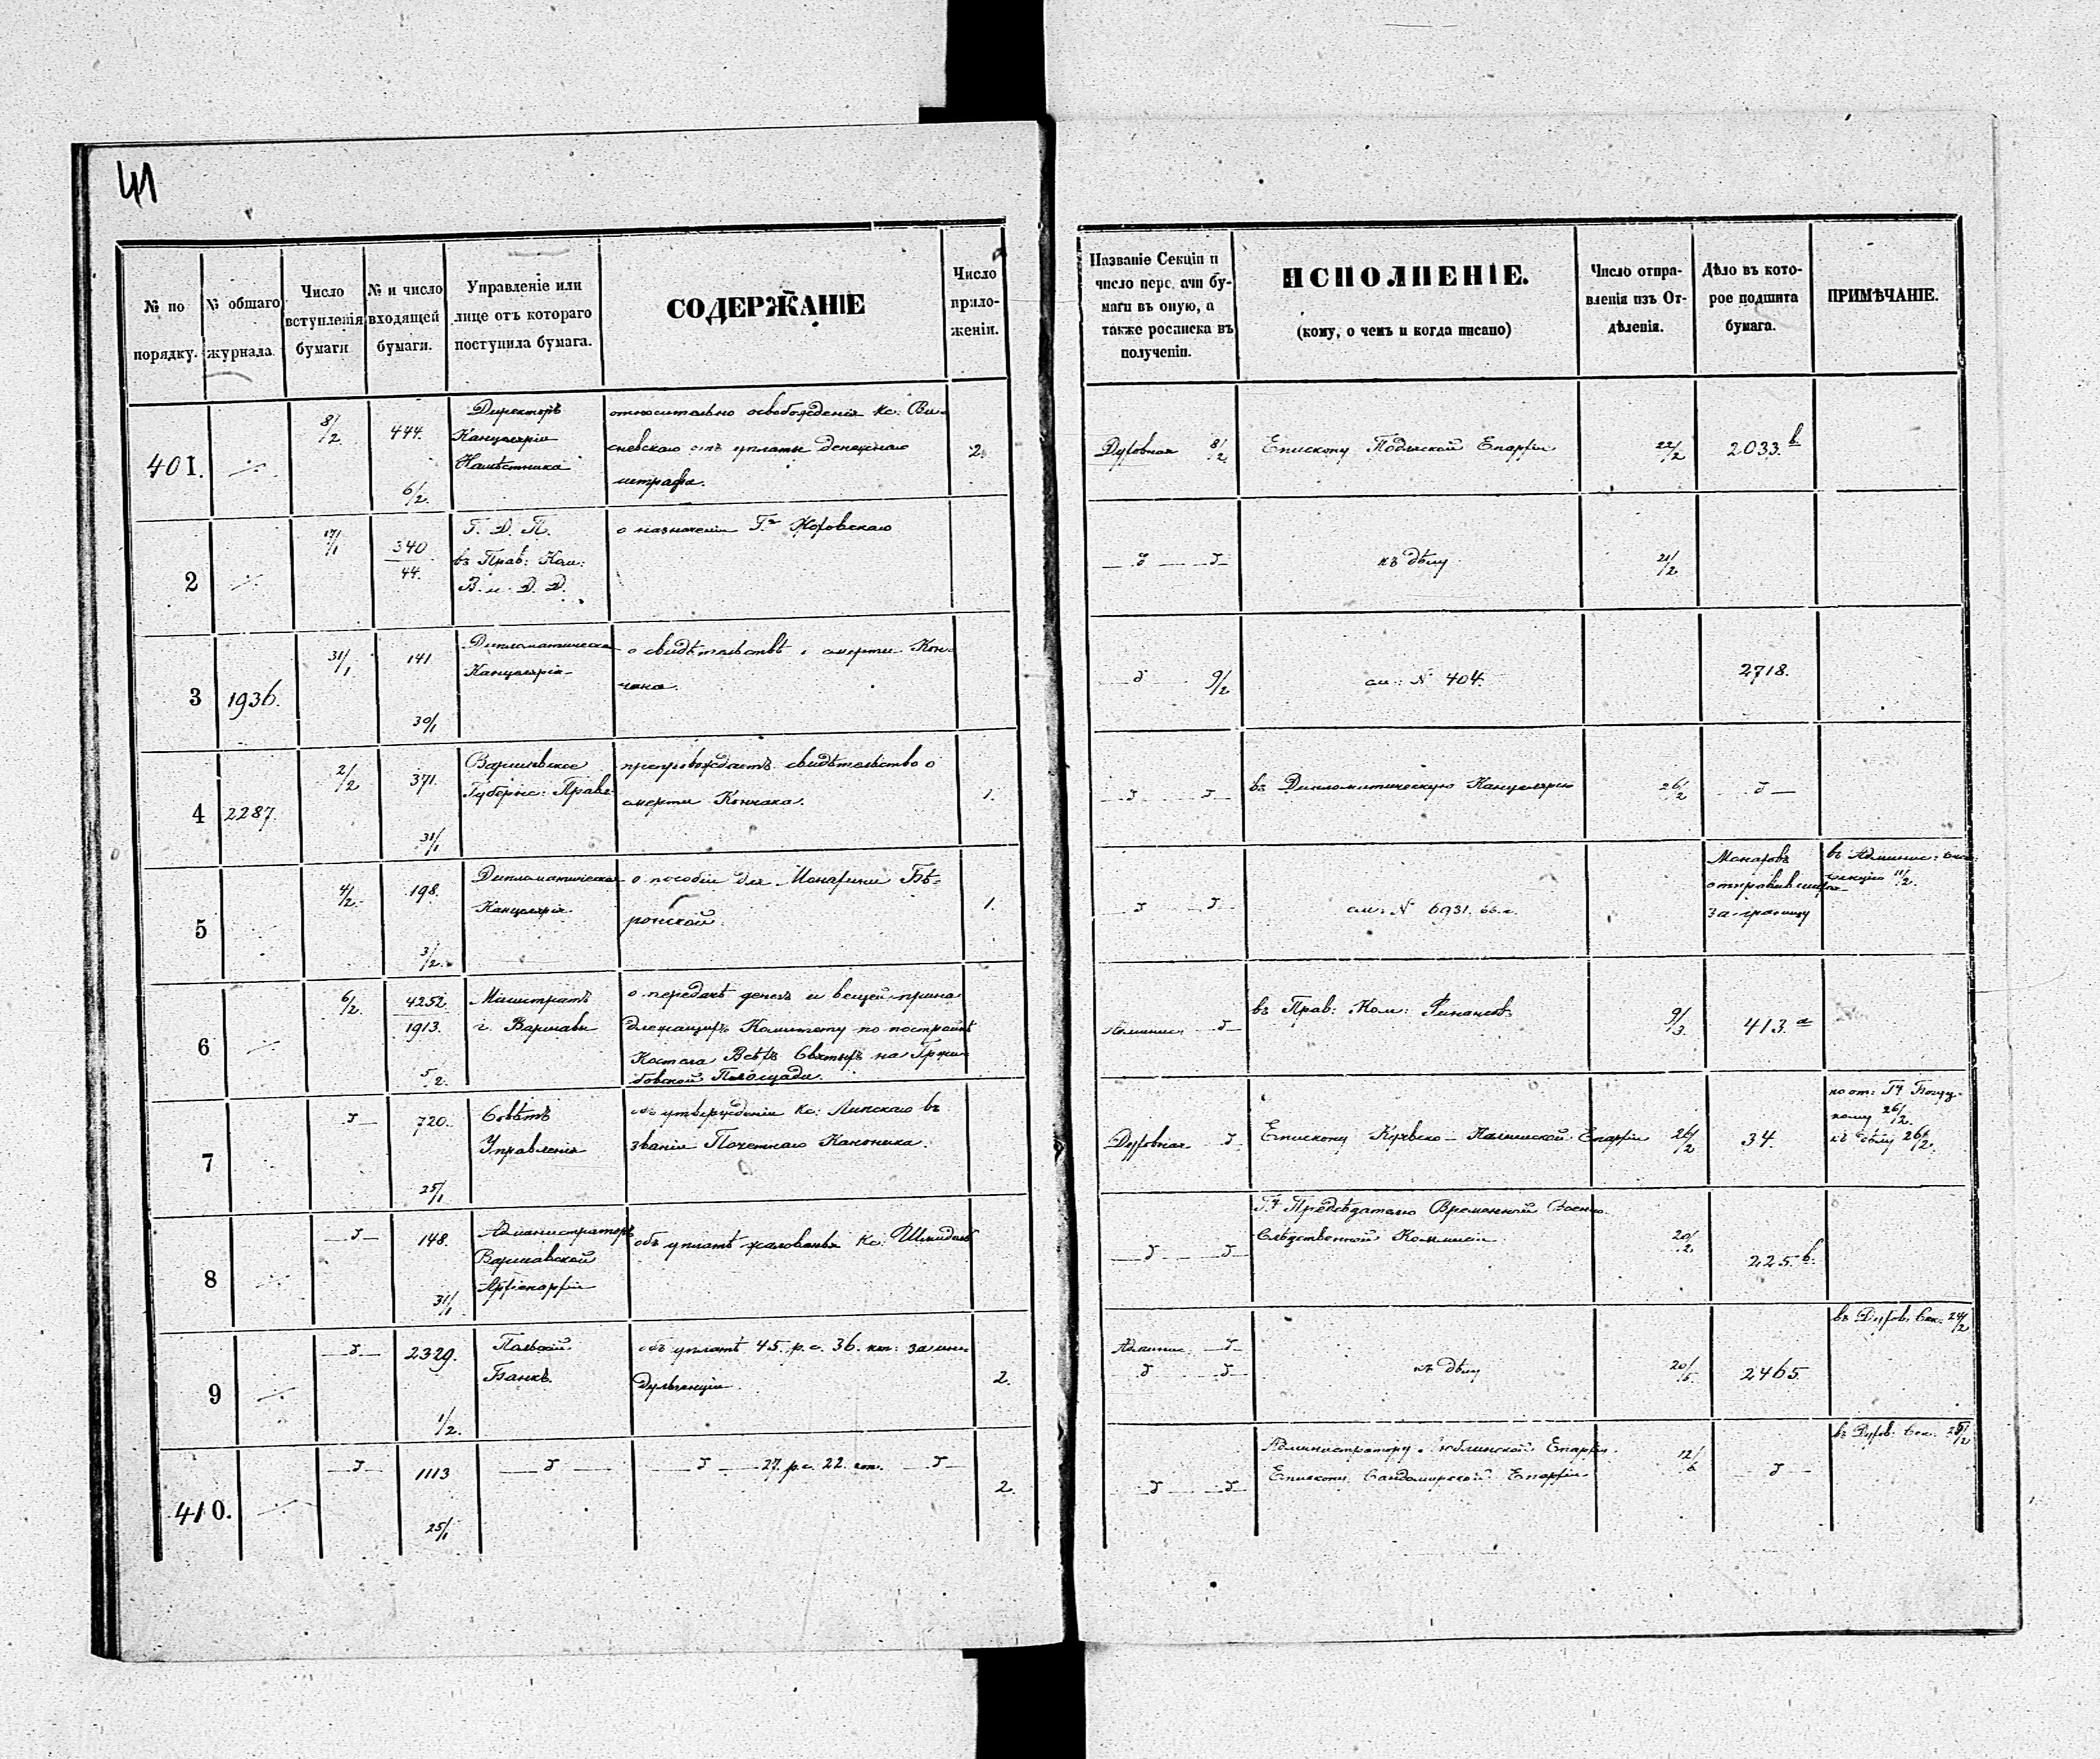 41
№ по порядку.
№ общаго журнала.
Число вступленія бумаги
№ и число входящей бумаги.
Управленіе или лице отъ котораго поступила бумага.
СОДЕРЖАНІЕ
Число приложеніи.
Названіе Секціи и число передачи бумаги въ оную, а также росписка въ полученіи.
ИСПОЛНЕНІЕ.
(кому, о чемъ и когда писано)
Число отправленія изъ Отдѣленія.
Дѣло въ которое подшита бумага.
ПРИМѢЧАНІЕ.
401.
8/2
444.
6/2.
Директоръ
Канцеляріи
Намѣстника
относительно освобожденія кс: Ви-
сневскаго отъ уплаты денежнаго
штрафа.
2.
Духовная 8/2
Епископу Подляской Епархіи
22/2
2033. b
2
17/1
340
44.
Г. Д. П.
въ Прав: Ком:
В. и Д. Д.
о назначеніи Г-
къ дѣлу
21/2
3
1936.
31/1
141
30/1
Дипломатическая
Канцелярія
о свидѣтельствѣ о смерти Кон-
чака.
9/2
см: N 404.
2718.
4
2287.
2/2
371.
31/1
Варшавское
Губернс: Правл:
препровождаетъ свидѣтельство о
смерти Кончака.
1.
въ Дипломатическую Канцелярію
26/2
5
4/2.
198.
3/2.
Дипломатическая
Канцелярія
о пособіи для Монахини Бѣ-
ронской.
1.
см: N 6931. 66.г.
Монаховъ
за-границу
въ Админис:
секцію 11/2.
6
6/2.
4252
1913.
5/2.
Магистратъ
г. Варшавы
о передачѣ денегъ и вещей прина-
длежащихъ Комитету по постройкѣ
Костела Всѣхъ Святыхъ на Гржи-
бовской Площади.
Админис.
въ Прав: Ком: Финансовъ
9/3.
413. a
7
720.
25/1
Совѣтъ
Управленія
объ утвержденіи Кс: Липскаго въ
званіи Почетнаго Каноника.
Духовная
Епископу Куявско-Калишской Епархіи
26/2
34.
26/2.
къ дѣлу 26/2.
8
148.
31/1
Администраторъ
Варшавской
Архіепархіи
объ уплатѣ жалованья Кс:
Г. Предсѣдателю Временной Военно-
Слѣдственной Коммисіи
20/2
225. b.
9
2329.
1/2.
Польскій
Банкъ.
объ уплатѣ 45. р. с. 36. коп: за ин-
дульгенціи.
2.
Админис.
къ дѣлу
20/5.
2465.
въ Духов. Сек. 24/2
410.
1113
25/1
27. р. с. 22. коп.
2.
Администратору Люблинской Епархіи.
Епископу Сандомирской Епархіи
12/6
въ Духов. Сек.